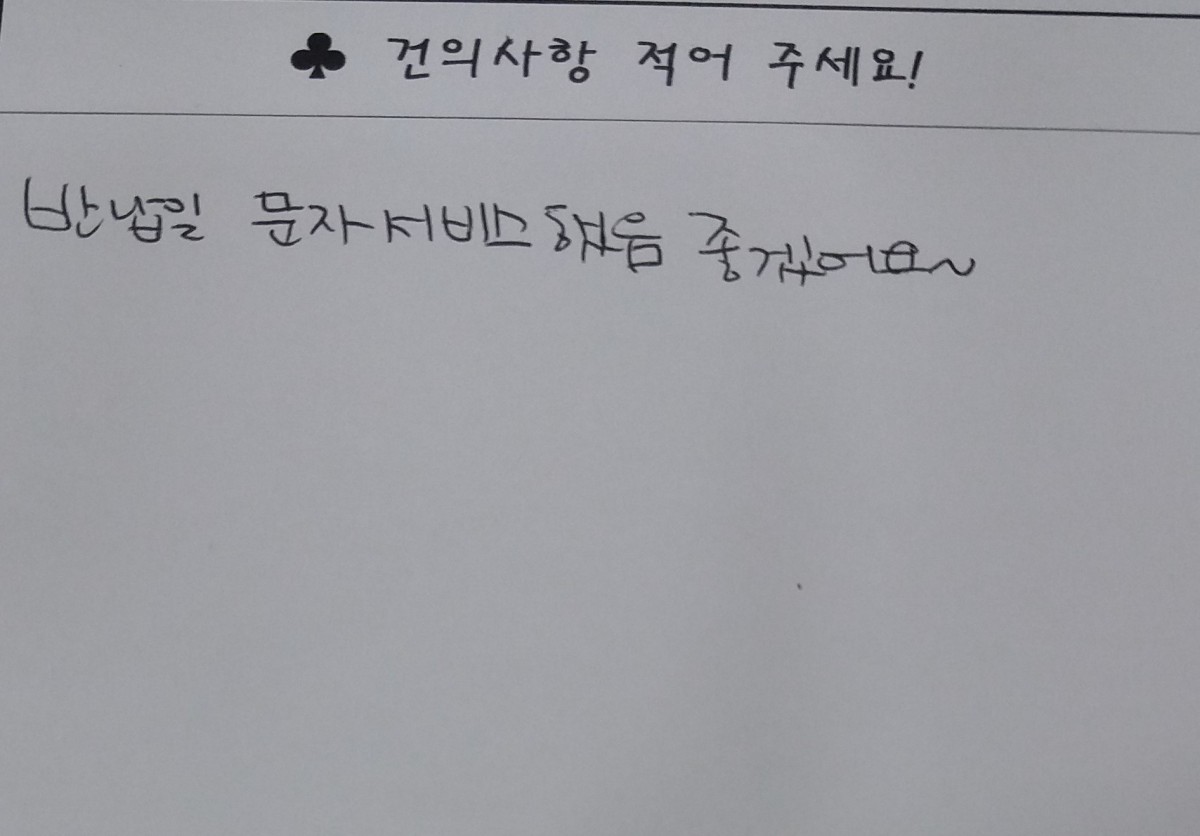 ♣ 건의사항 적어 주세요!
반납일 문자서비스 했음 좋겠어요~